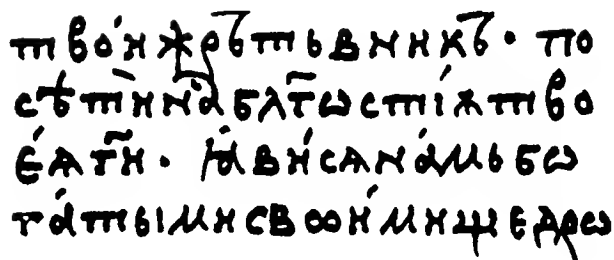 твои́ жрътъвникъ· по
сѣти́ на́ блг҃остїѫ тво
е́ѫ гн҃· ꙗ҆ви́сѧ на́мь бѡ
га́тыими своои́ми щедрѡ